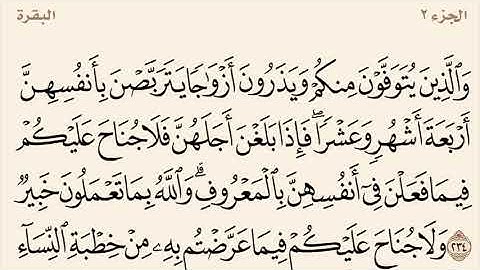 الجزء ٢ البقرة
وَٱلَّذِينَ يُتَوَفَّوۡنَ مِنكُمۡ وَيَذَرُونَ أَزۡوَٰجٗا يَتَرَبَّصۡنَ بِأَنفُسِهِنَّ
أَرۡبَعَةَ أَشۡهُرٖ وَعَشۡرٗاۖ فَإِذَا بَلَغۡنَ أَجَلَهُنَّ فَلَا جُنَاحَ عَلَيۡكُمۡ
فِيمَا فَعَلۡنَ فِيٓ أَنفُسِهِنَّ بِٱلۡمَعۡرُوفِۗ وَٱللَّهُ بِمَا تَعۡمَلُونَ خَبِيرٞ
٢٣٤ وَلَا جُنَاحَ عَلَيۡكُمۡ فِيمَا عَرَّضۡتُم بِهِۦ مِنۡ خِطۡبَةِ ٱلنِّسَآءِ